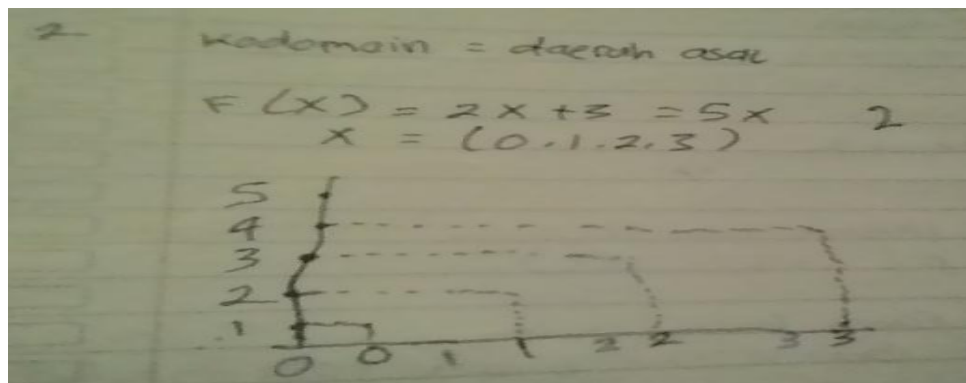 2 Kodomain = daerah asal
F(X) = 2X + 3 = 5X 2
X = (0.1.2.3)
5
4
3
2
1
0 0 1 1 2 2 3 3